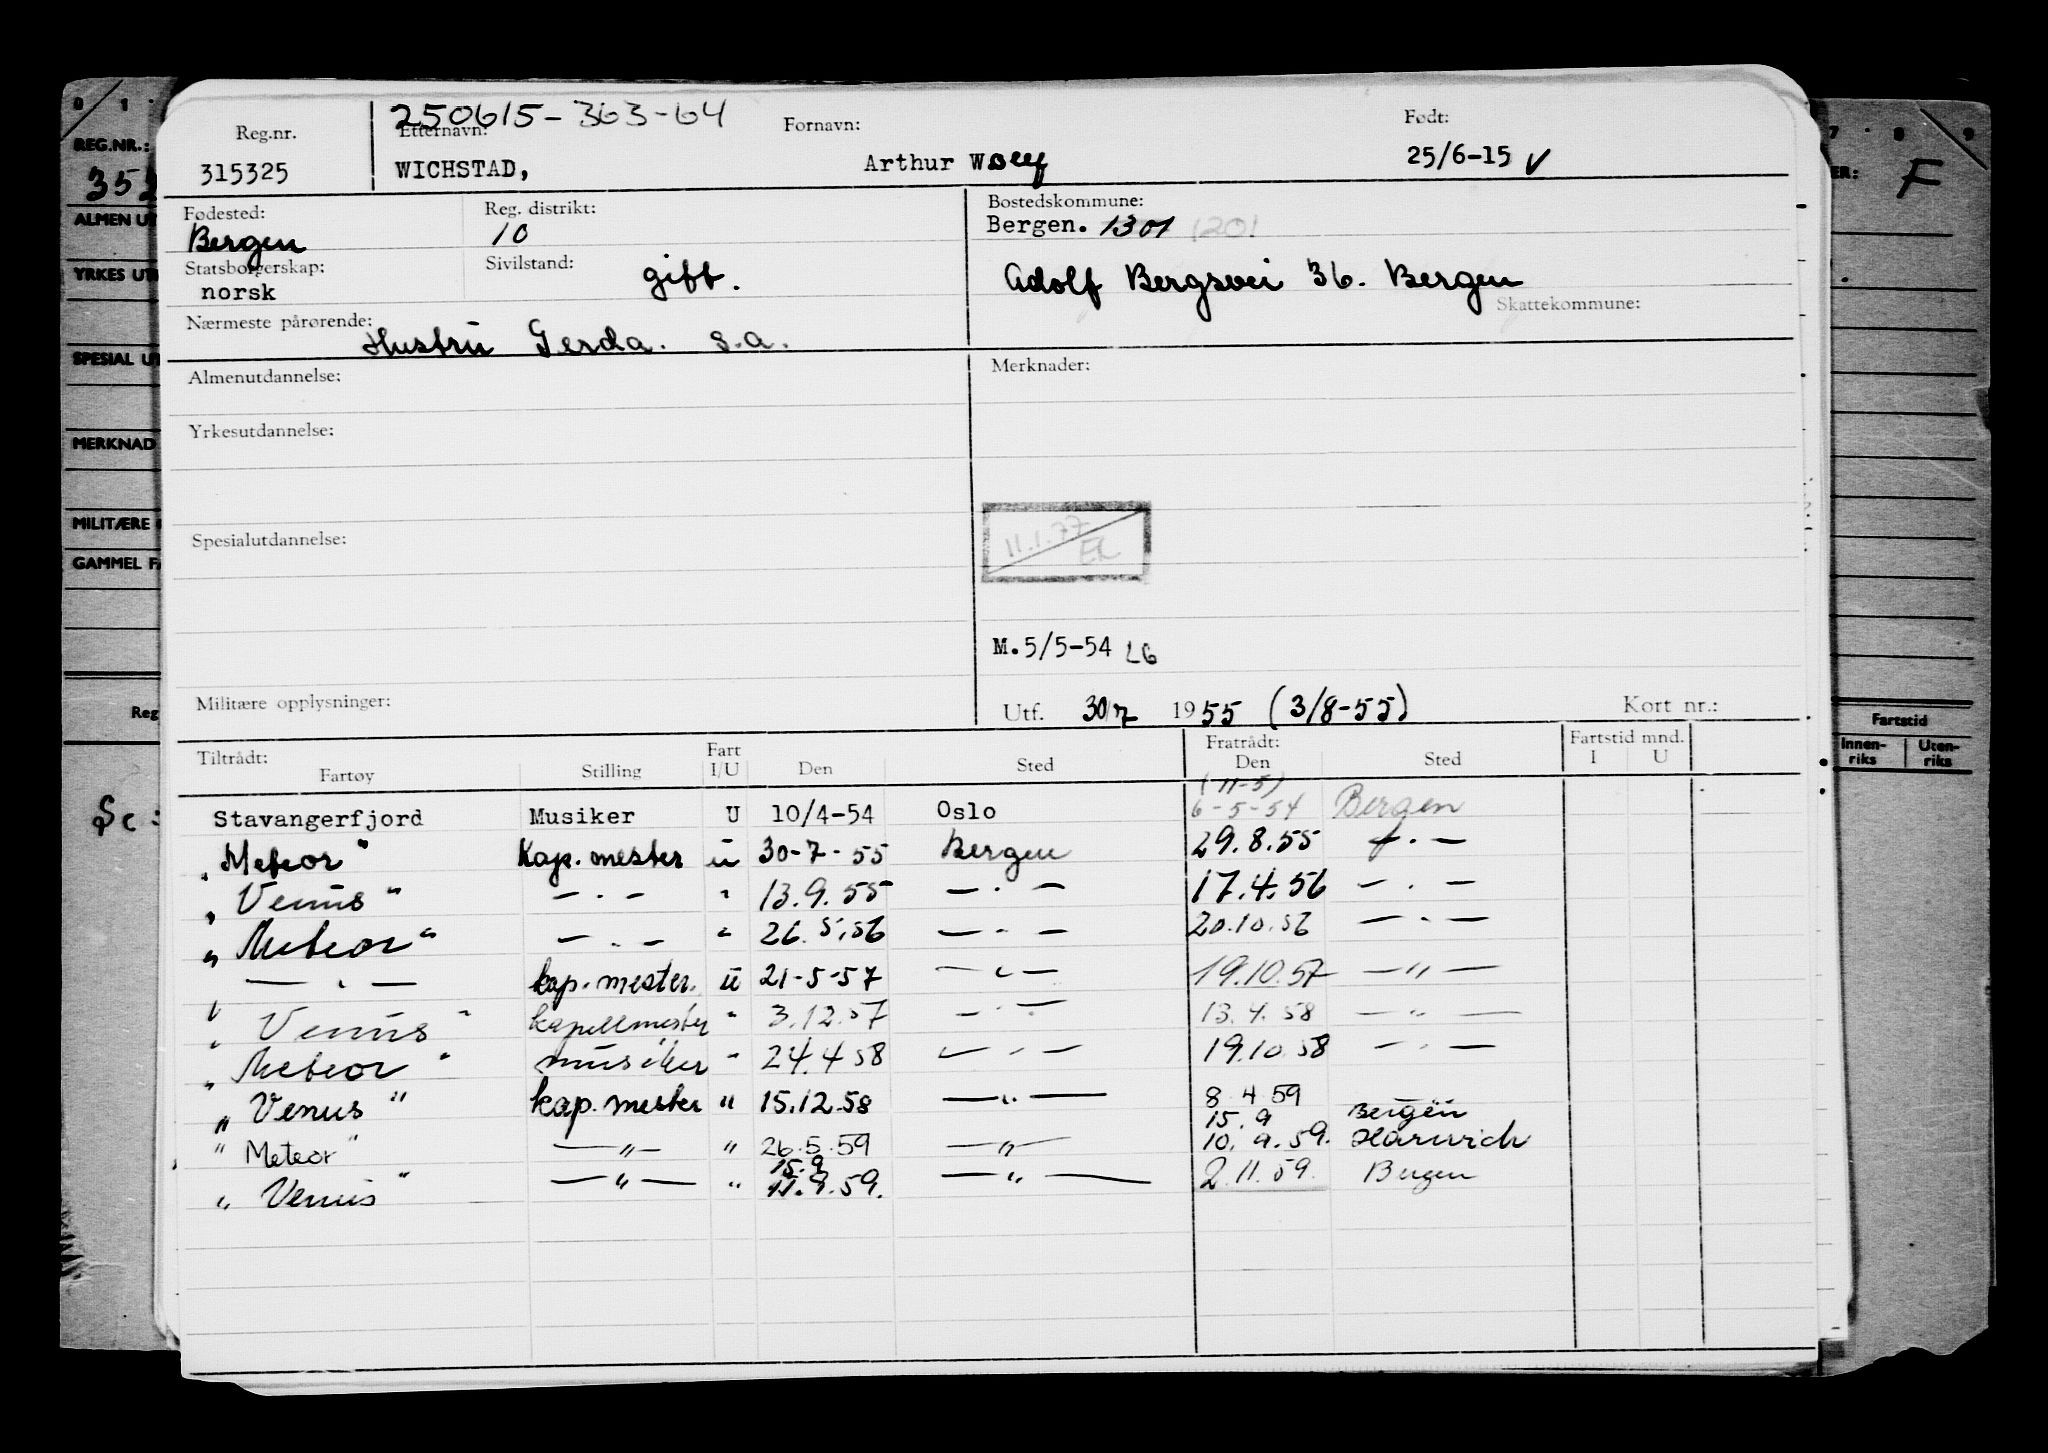 0 1
REG.NR.:
ALMEN UT
YRKES UT
SPESIAL UT
MERKNAD
MILITÆRE
GAMMEL FA
Reg
7 8 9
F
Fartstid
Innen-riks Uten-riks
250615-363-64
Reg.nr. Etternavn: Fornavn: Født:
315325 WICHSTAD, Arthur 25/6-15 V
Fødested: Reg. distrikt: Bostedskommune:
Bergen 10 Bergen. 1301 1201
Statsborgerskap: Sivilstand:
norsk gift. Adolf Bergsvei 36. Bergen
Skattekommune:
Nærmeste pårørende:
Hustru Gerda. s.a.
Almenutdannelse: Merknader:
Yrkesutdannelse:
Spesialutdannelse: 11.1.77
M.5/5-54 LG
Militære opplysninger: Utf. 30/7 1955 (3/8-55) Kort nr.:
Tiltrådt: Fart Fratrådt: Fartstid mnd.
Fartøy Stilling I/U Den Sted Den Sted I U
(11-5)
Stavangerfjord Musiker U 10/4-54 Oslo 6-5-54 Bergen
"Meteor" Kap.mester u 30-7-55 Bergen 29.8.55 — . —
"Venus" — . — " 13.9.55 — . — 17.4.56 — . —
"Meteor" — . — " 26.5.56 — . — 20.10.56 — . —
— . — kap.mester. u 21-5-57 — " — 19.10.57 — " —
"Venus" kapellmester " 3.12.57 — " — 13.4.58 — " —
"Meteor" musiker " 24.4 58 — . — 19.10 58 — . —
"Venus" kap.mester " 15.12.58 — " — 8.4.59 Bergen
15.9
"Meteor" — " — " 26.5.59 — " — 10.9.59. Harwich
15.9
"Venus" — " — " 11.9.59. — " — 2.11.59. Bergen